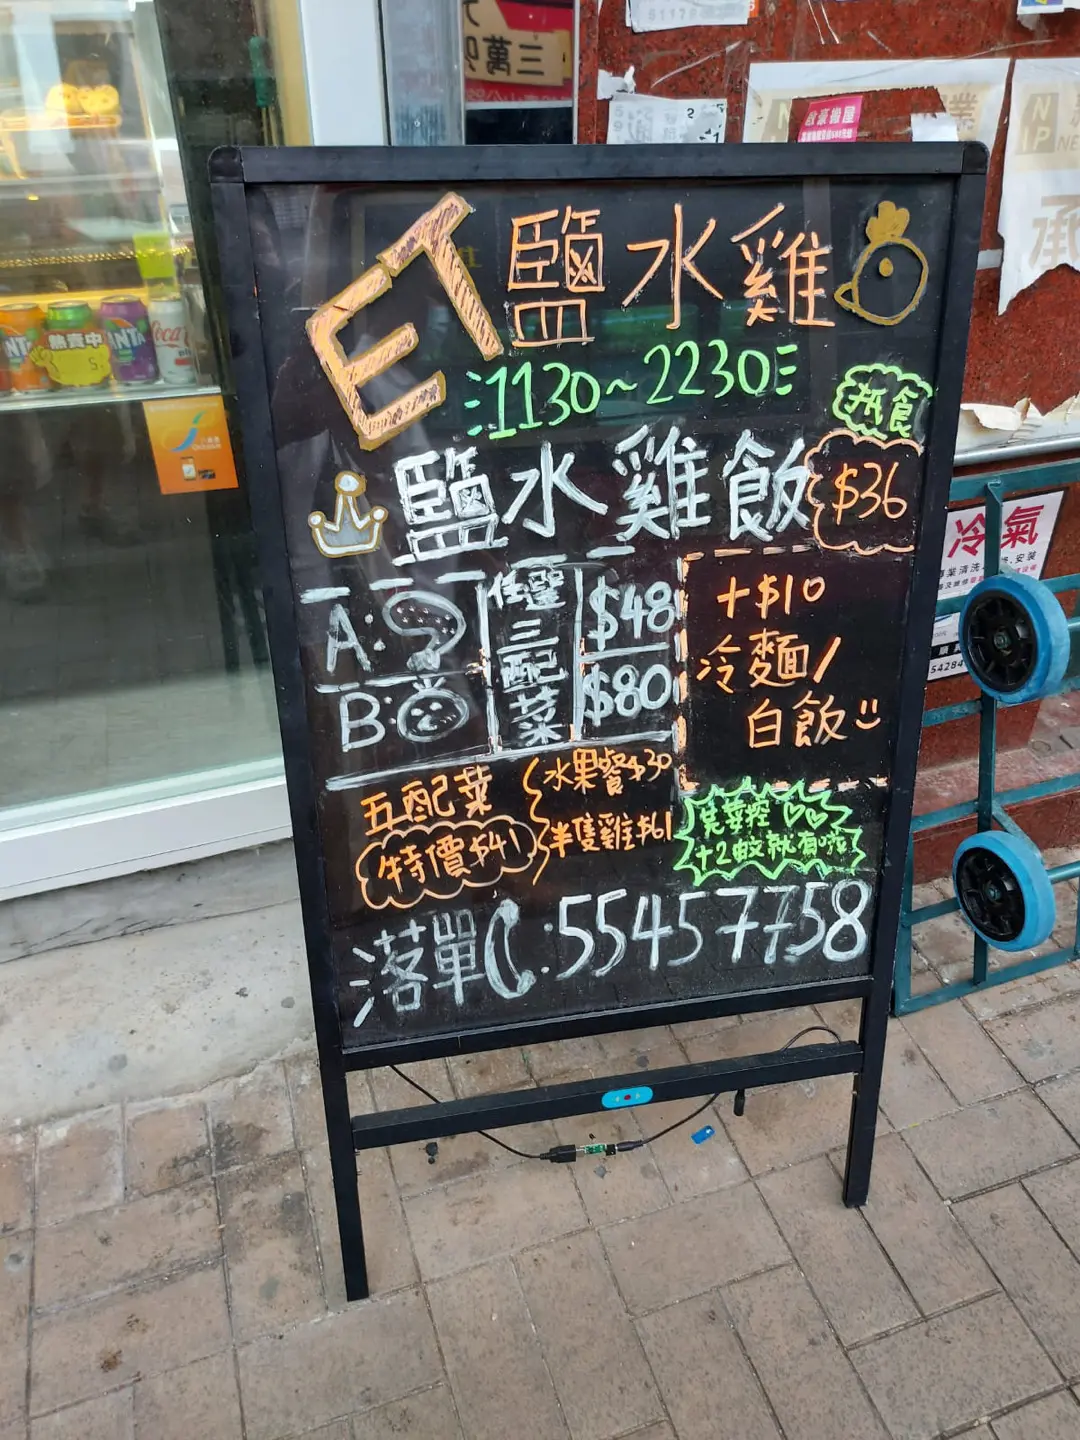 三萬
啟豪搬屋
承
ET 鹽水雞
1130~2230
抵食
鹽水雞飯 $36
A: 任選三配菜 $48
B: $80
+$10
冷麵/
白飯
五配菜
特價$41
水果餐$30
半隻雞$61
芫荽控
+2蚊就有啦
落單 : 55457758
熱賣中
冷氣